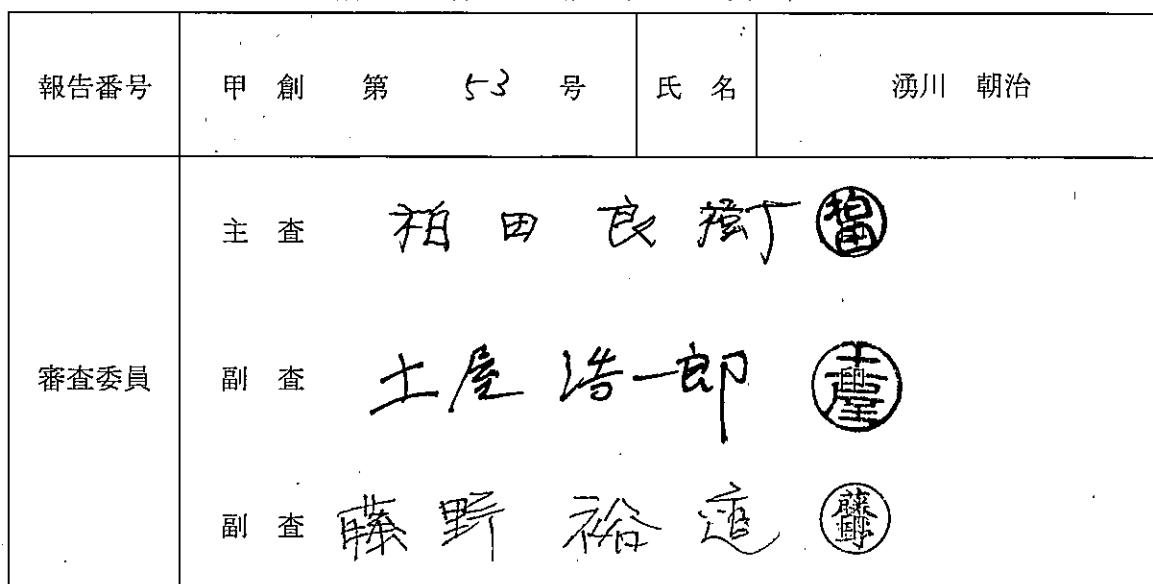 報告番号 甲 創 第 53 号 氏 名 湧川 朝治
審査委員 主 査 柏田良樹 柏田
副 査 土屋浩一郎 土屋
副 査 藤野裕道 藤野